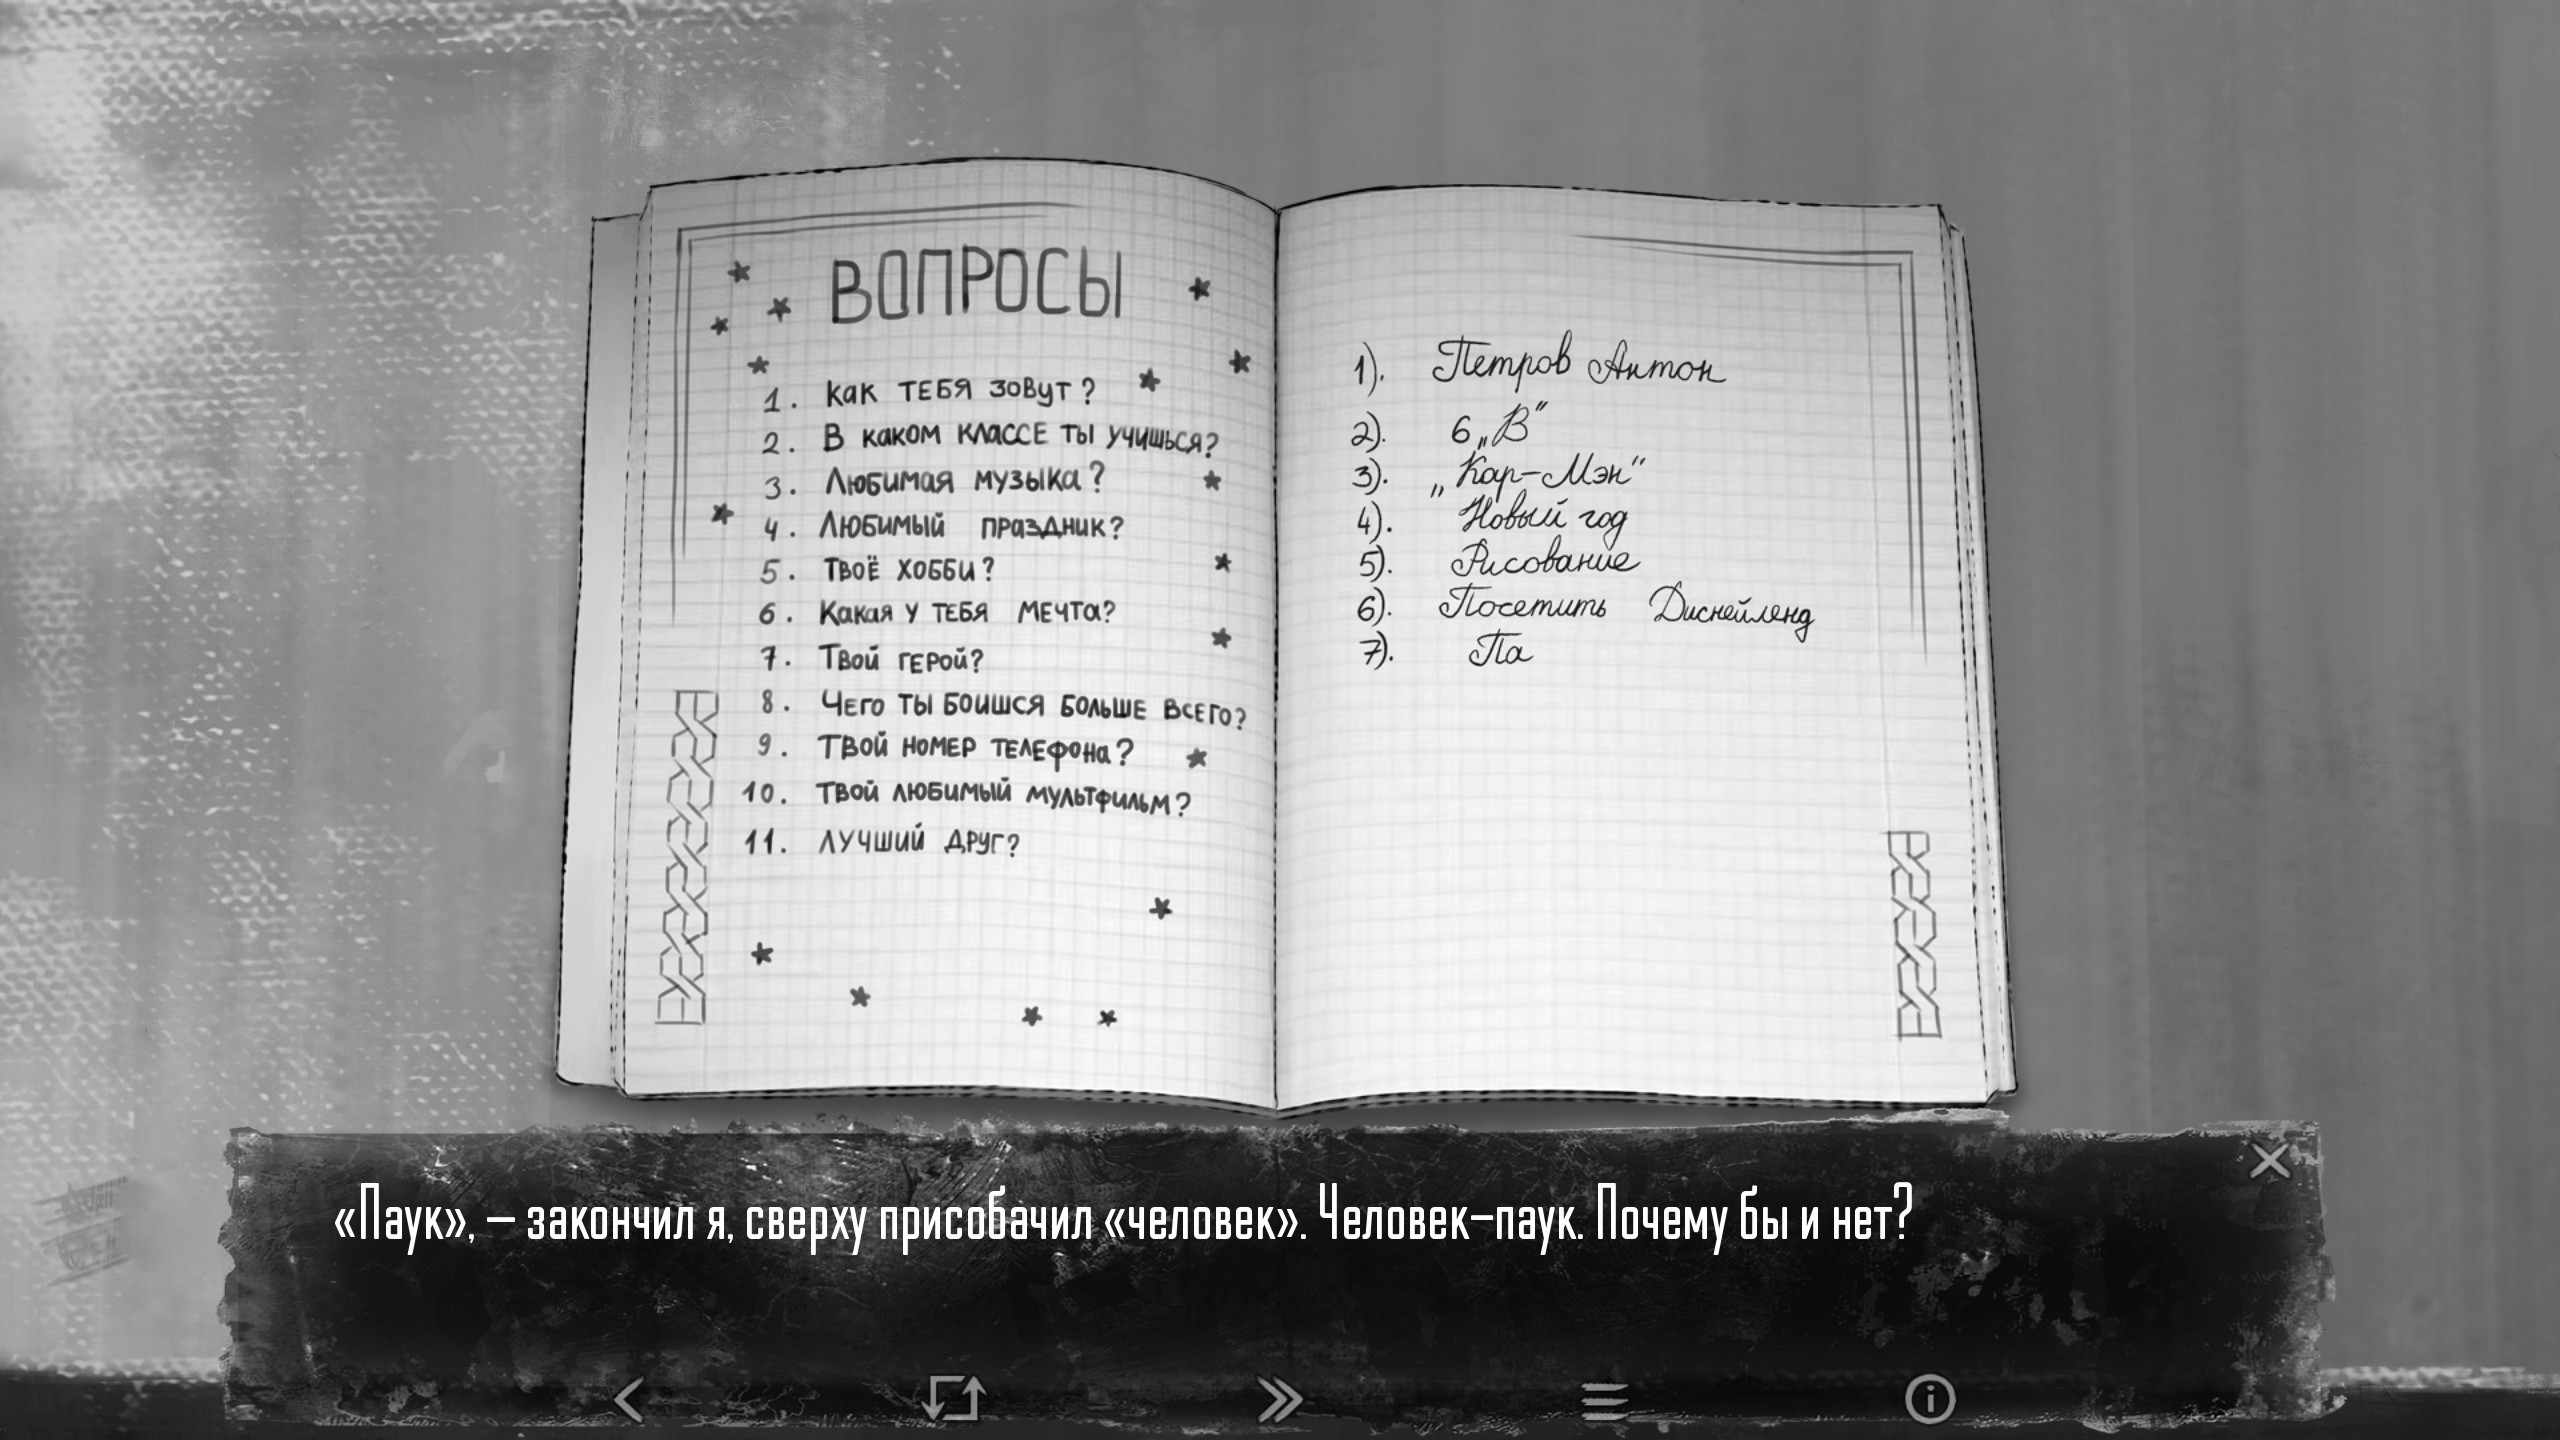 ВОПРОСЫ
1. Как тебя зовут?
2. В каком классе ты учишься?
3. Любимая музыка?
4. Любимый праздник?
5. Твоё хобби?
6. Какая у тебя мечта?
7. Твой герой?
8. Чего ты боишся больше всего?
9. Твой номер телефона?
10. Твой любимый мультфильм?
11. Лучший друг?
1). Петров Антон
2). 6 „В“
3). „Кар-Мэн“
4). Новый год
5). Рисование
6). Посетить Диснейленд
7). Па
«Паук», – закончил я, сверху присобачил «человек». Человек-паук. Почему бы и нет?